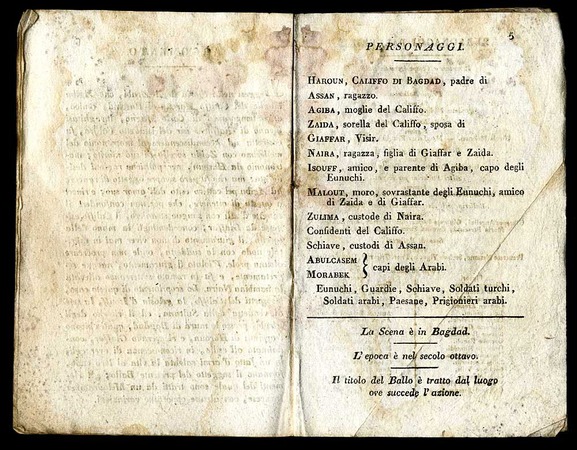 5
PERSONAGGI.
HAROUN, CALIFFO DI BAGDAD, padre di
ASSAN, ragazzo.
AGIBA, moglie del Califfo.
ZAIDA, sorella del Califfo, sposa di
GIAFFAR, Visir.
NAIRA, ragazza, figlia di Giaffar e Zaida.
ISOUFF, amico, e parente di Agiba, capo degli
Eunuchi.
MALOUT, moro, sovrastante degli Eunuchi, amico
di Zaida e di Giaffar.
ZULIMA, custode di Naira.
Confidenti del Califfo.
Schiave, custodi di Assan.
ABULCASEM
MORABEK } capi degli Arabi.
Eunuchi, Guardie, Schiave, Soldati turchi,
Soldati arabi, Paesane, Prigionieri arabi.
La Scena è in Bagdad.
L'epoca è nel secolo ottavo.
Il titolo del Ballo è tratto dal luogo
ove succede l'azione.